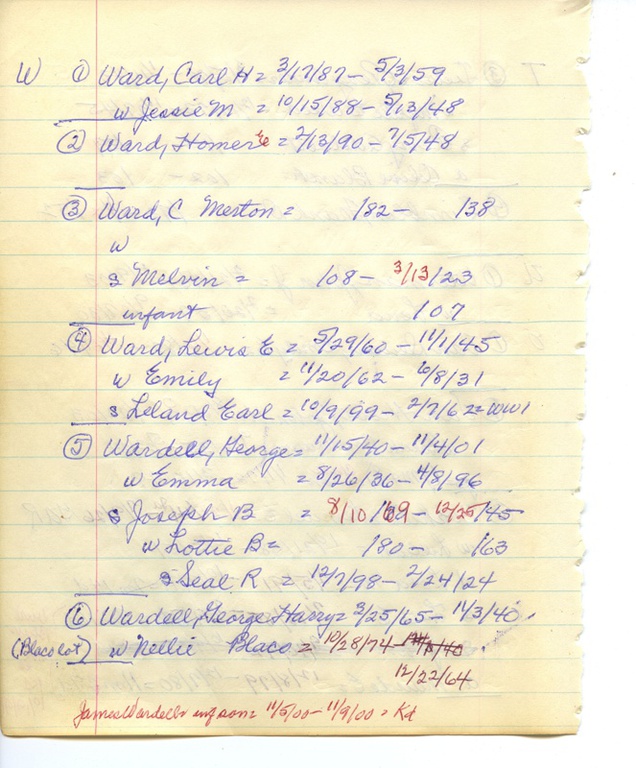 W ① Ward, Carl H = 3/17/87 - 5/3/59
w Jessie M = 10/15/88 - 5/13/48
② Ward, Homer E = 2/13/90 - 7/5/48
③ Ward, C Merton = /82 - /38
w
s Melvin = /08 - 3/13/23
infant /07
④ Ward, Lewis E = 5/29/60 - 11/1/45
w Emily = 11/20/62 - 6/8/31
s Leland Earl = 10/9/99 - 2/7/62 = WW1
⑤ Wardell, George = 11/15/40 - 11/4/01
w Emma = 8/26/36 - 4/8/96
s Joseph B = 8/10/69 - 12/25/45
w Lottie B = /80 - /63
s Seal R = 12/7/98 - 2/24/24
⑥ Wardell, George Harry = 3/25/65 - 11/3/40
(Blaco lot) w Nellie Blaco = 10/28/74 -
12/22/64
James Wardell = inf son = 11/5/00 - 11/9/00 = Kd